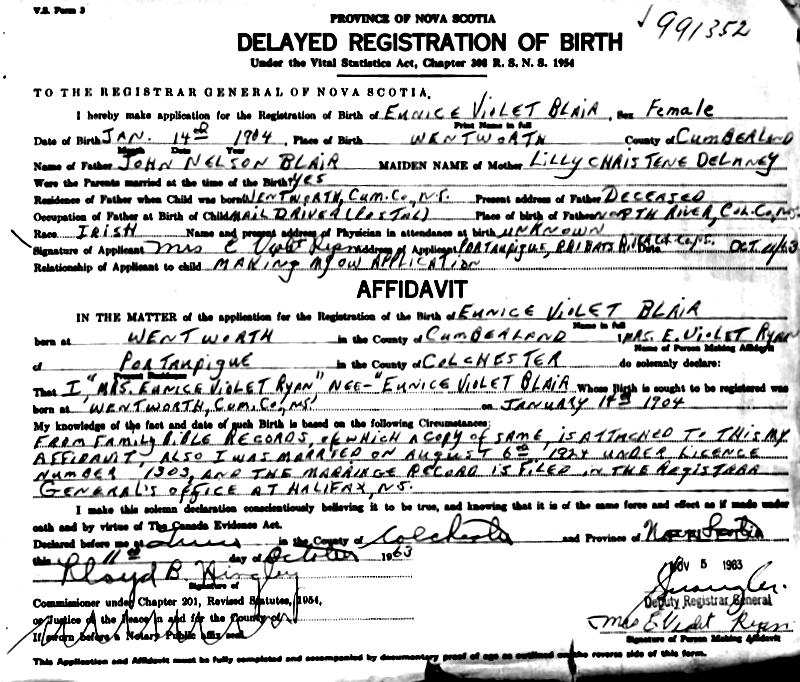 V.S. Form 3
PROVINCE OF NOVA SCOTIA
991352
DELAYED REGISTRATION OF BIRTH
Under the Vital Statistics Act, Chapter 308 R. S. N. S. 1954
TO THE REGISTRAR GENERAL OF NOVA SCOTIA.
I hereby make application for the Registration of Birth of EUNICE VIOLET BLAIR, Sex Female
Print Name in full
Date of Birth JAN. 14th 1904, Place of Birth WENTWORTH County of CUMBERLAND
Month Date Year
Name of Father JOHN NELSON BLAIR MAIDEN NAME of Mother LILLY CHRISTENE DELANEY
Were the Parents married at the time of the Birth? YES
Residence of Father when Child was born WENTWORTH, CUM. CO, N.S. Present address of Father DECEASED
Occupation of Father at Birth of Child MAIL DRIVER (POSTAL) Place of birth of Father NORTH RIVER, COL. CO, N.S.
Race IRISH Name and present address of Physician in attendance at birth UNKNOWN
Signature of Applicant Mrs E Violet Ryan Address of Applicant PORTAUPIQUE, Date OCT. 11/63
Relationship of Applicant to child MAKING MY OW APPLICATION
AFFIDAVIT
IN THE MATTER of the application for the Registration of the Birth of EUNICE VIOLET BLAIR
Name in full
born at WENTWORTH in the County of CUMBERLAND MRS. E. VIOLET RYAN
Name of Person Making Affidavit
of PORTAUPIQUE in the County of COLCHESTER do solemnly declare:
Present Residence
That I "MRS. EUNICE VIOLET RYAN" NEE-"EUNICE VIOLET BLAIR Whose Birth is sought to be registered was
born at 'WENTWORTH, CUM. CO, N.S.' on JANUARY 14th 1904
My knowledge of the fact and date of such Birth is based on the following Circumstances:
FROM FAMILY BIBLE RECORDS, OF WHICH A COPY OF SAME, IS ATTACHED TO THIS MY
AFFIDAVIT, ALSO I WAS MARRIED ON AUGUST 6th 1924 UNDER LICENCE
NUMBER '1303, AND THE MARRIAGE RECORD IS FILED IN THE REGISTRAR
GENERAL'S OFFICE AT HALIFAX, N.S.
I make this solemn declaration conscientiously believing it to be true, and knowing that it is of the same force and effect as if made under
oath and by virtue of The Canada Evidence Act.
Declared before me at Truro in the County of Colchester and Province of Nova Scotia
this 11th day of October 1963
NOV 5 1963
Lloyd B. Hingley
Signature of
Commissioner under Chapter 201, Revised Statutes, 1954,
Deputy Registrar General
or Justice of the Peace in and for the County of
Mrs E Violet Ryan
If sworn before a Notary Public affix seal
Signature of Person Making Affidavit
This Application and Affidavit must be fully completed and accompanied by documentary proof of age as outlined on the reverse side of this form.